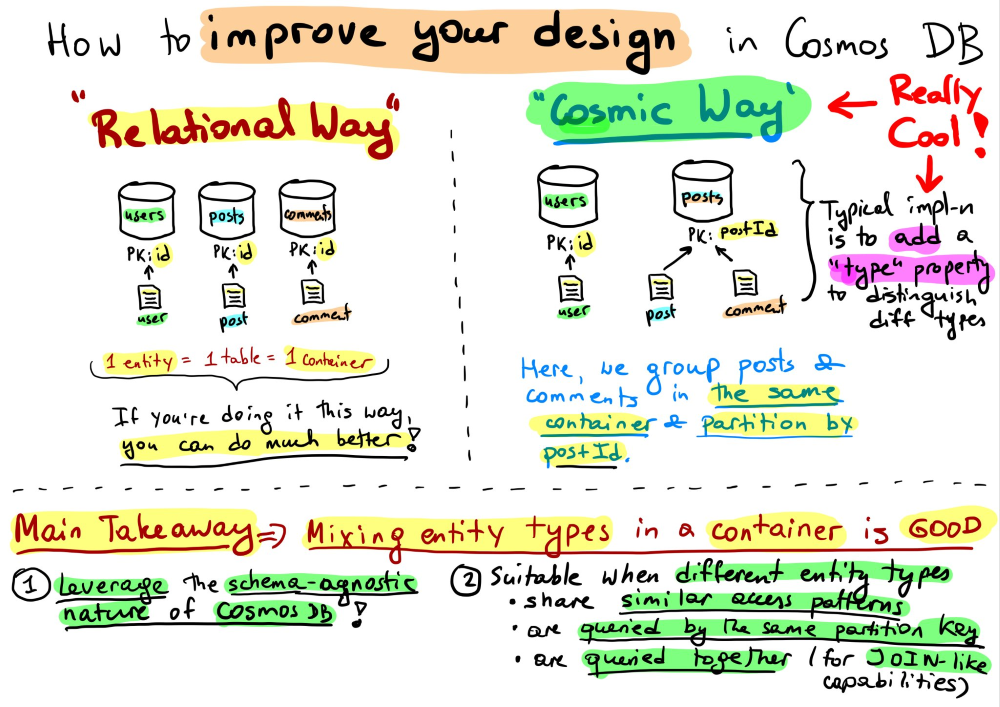 How to improve your design in Cosmos DB
"Relational Way"
users
posts
comments
PK: id
PK: id
PK: id
user
post
comment
1 entity = 1 table = 1 container
If you're doing it this way,
you can do much better!
"Cosmic Way"
Really
Cool!
users
posts
PK: id
PK: postId
user
post
comment
Typical impl-n
is to add a
"type" property
to distinguish
diff types
Here, we group posts &
comments in the same
container & partition by
postId.
Main Takeaway => Mixing entity types in a container is GOOD
1 Leverage the schema-agnostic
nature of Cosmos DB!
2 Suitable when different entity types
• share similar access patterns
• are queried by the same partition key
• are queried together (for JOIN-like
capabilities)